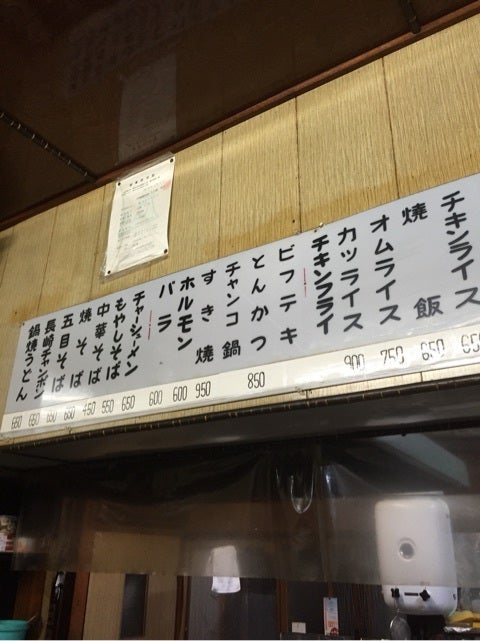 チキンライス
650
焼飯
650
オムライス
750
カツライス
900
チキンフライ
ビフテキ
とんかつ
850
チャンコ鍋
すき焼
950
ホルモン
600
バラ
600
チャーシューメン
650
もやしそば
550
中華そば
450
焼そば
650
五目そば
650
長崎チャンポン
650
鍋焼うどん
650